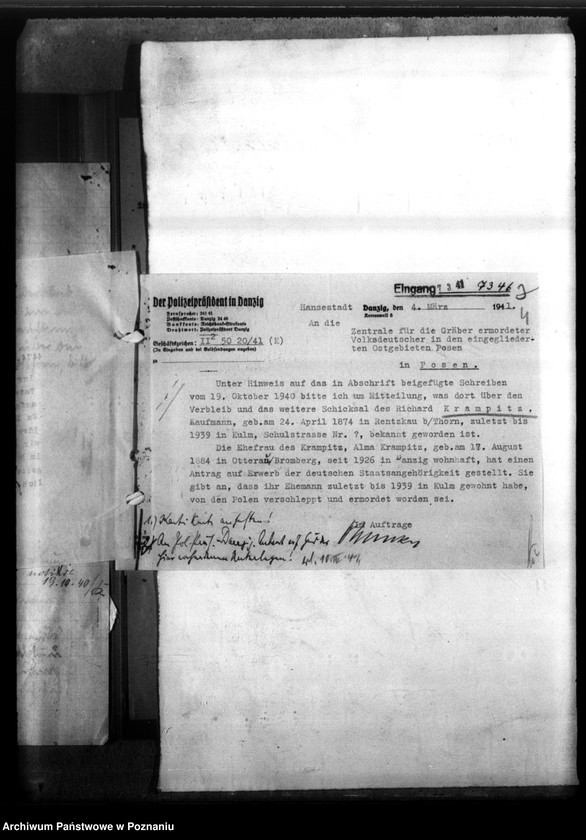 Eingang 7 3 41 7346
Der Polizeipräsident in Danzig
Fernsprecher: 241 41
Postscheckkonto: Danzig
Bankkonto: Reichsbankgirokonto
Drahtwort: Polizeipräsident Danzig
Geschäftszeichen: II² 50 20/41 (E)
(In Eingaben und bei Geldsendungen angeben)
Hansestadt Danzig, den 4. März 1941.
An die
Zentrale für die Gräber ermordeter
Volksdeutscher in den eingeglieder-
ten Ostgebieten Posen
in Posen.
Unter Hinweis auf das in Abschrift beigefügte Schreiben
vom 19. Oktober 1940 bitte ich um Mitteilung, was dort über den
Verbleib und das weitere Schicksal des Richard Krampitz,
Kaufmann, geb.am 24. April 1874 in Rentzkau b/Thorn, zuletzt bis
1939 in Kulm, Schulstrasse Nr. 7, bekannt geworden ist.
Die Ehefrau des Krampitz, Alma Krampitz, geb.am 17. August
1884 in Otterau/Bromberg, seit 1926 in Danzig wohnhaft, hat einen
Antrag auf Erwerb der deutschen Staatsangehörigkeit gestellt. Sie
gibt an, dass ihr Ehemann zuletzt bis 1939 in Kulm gewohnt habe,
von den Polen verschleppt und ermordet worden sei.
Im Auftrage
19.10.40
Archiwum Państwowe w Poznaniu